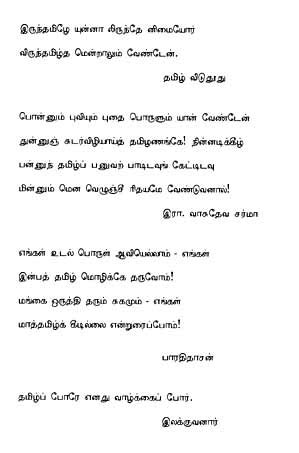 இருந்தமிழே யுன்னா லிருந்தே னிமையோர்
விருந்தமிழ்த மென்றாலும் வேண்டேன்.
தமிழ் விடுதூது
பொன்னும் புவியும் புதை பொருளும் யான் வேண்டேன்
துன்னுஞ் சுடர்விழியாய்த் தமிழணங்கே! நின்னடிக்கீழ்
பன்னுந் தமிழ்ப் பனுவற் பாடிடவுங் கேட்டிடவு
மின்னும் மென வெழுஞ்சீ ரிதயமே வேண்டுவனால்!
இரா. வாசுதேவ சர்மா
எங்கள் உடல் பொருள் ஆவியெல்லாம் - எங்கள்
இன்பத் தமிழ் மொழிக்கே தருவோம்!
மங்கை ஒருத்தி தரும் சுகமும் - எங்கள்
மாத்தமிழ்க் கீடில்லை என்றுரைப்போம்!
பாரதிதாசன்
தமிழ்ப் போரே எனது வாழ்க்கைப் போர்.
இலக்குவனார்